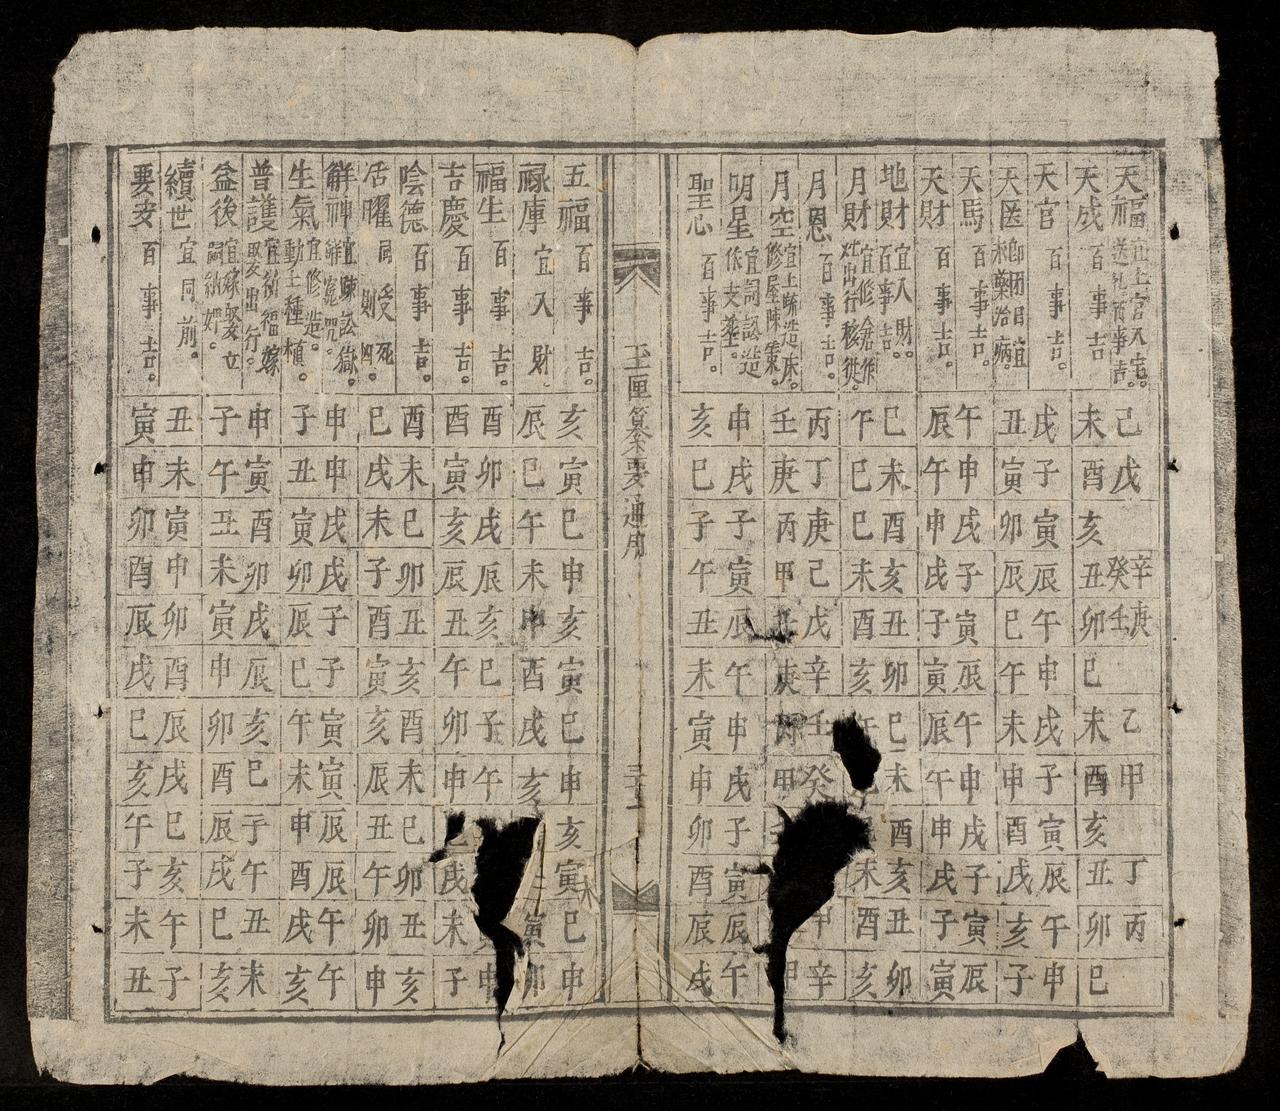 天福宜上官入宅。送礼百事吉。己戊辛癸庚壬乙甲丁丙
天成百事吉未酉亥丑卯巳未酉亥丑卯巳
天官百事吉。戌子寅辰午申戌子寅辰午申
天医即田日宜治病。丑寅卯辰巳午未申酉戌亥子
天馬百事吉。午申戌子寅辰午申戌子寅辰
天財百事吉。辰午申戌子寅辰午申戌子寅
地財宜入財。百事吉。巳未酉亥丑卯巳未酉亥丑卯
月財宜修倉作出行移徙。午巳巳未酉亥午未酉亥
月恩百事吉。丙丁庚己戊辛壬癸甲辛
月空宜上疏造床。修屋陳策。壬庚丙甲壬庚丙甲甲
明星宜詞訟造作支葬。申戌子寅辰午申戌子寅辰午
聖心百事吉。亥巳子午丑未寅申卯酉辰戌
玉匣纂要通用
三十二
五福百事吉。亥寅巳申亥寅巳申亥寅巳申
祿庫宜入財。辰巳午未申酉戌亥寅卯
福生百事吉。酉卯戌辰亥巳子午申
吉慶百事吉。酉寅亥辰丑午卯申巳戌未子
陰德百事吉。酉未巳卯丑亥酉未巳卯丑亥
活曜同受死則凶。巳戌未子酉寅亥辰丑午卯申
解神宜陳訟獄。解寃咒。申申戌戌子子寅寅辰辰午午
生氣宜修造。動土種植。子丑寅卯辰巳午未申酉戌亥
普護宜祈福嫁娶出行。申寅酉卯戌辰亥巳子午丑未
益後宜嫁娶立詞納婿。子午丑未寅申卯酉辰戌巳亥
續世宜同前。丑未寅申卯酉辰戌巳亥午子
要安百事吉。寅申卯酉辰戌巳亥午子未丑